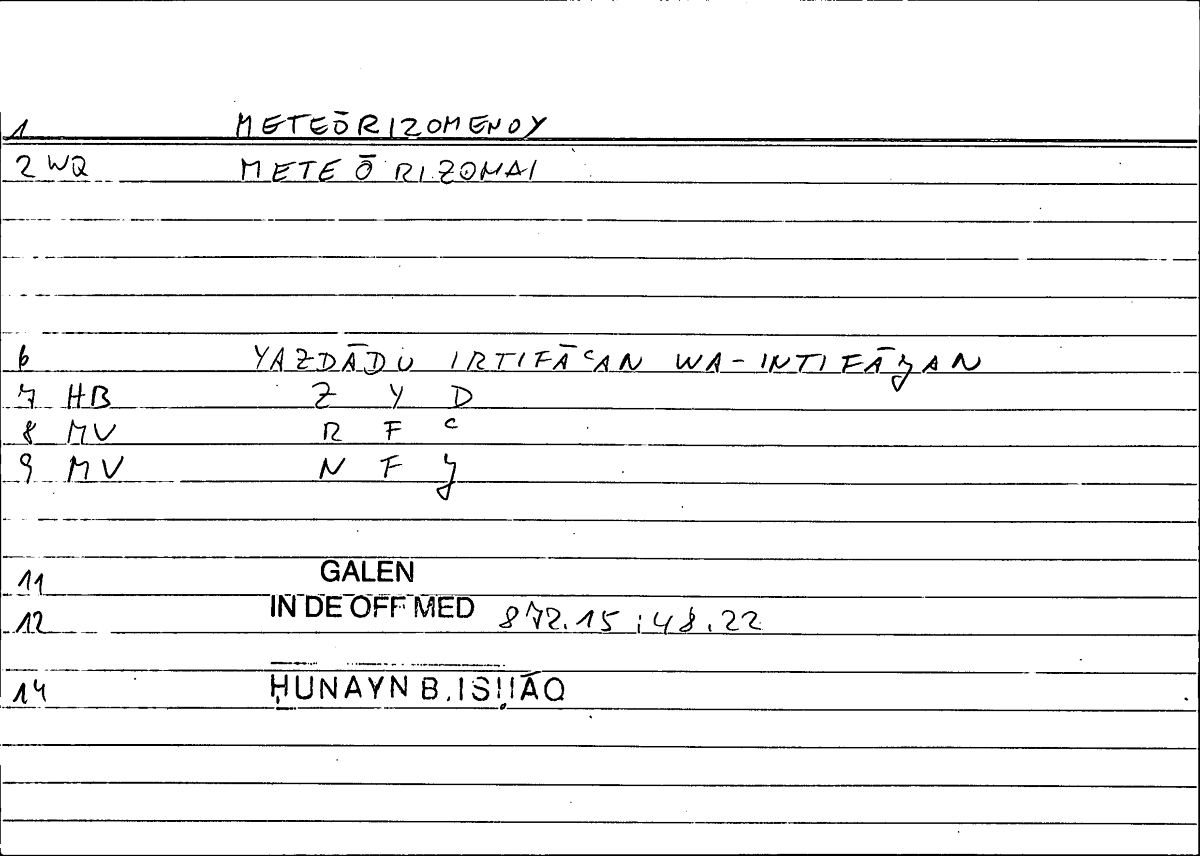 1 METEŌRIZOMENOY
2 WQ METEŌRIZOMAI
6 YAZDĀDU IRTIFĀʿAN WA-INTIFĀʒAN
7 HB Z Y D
8 MV R F ʿ
9 MV N F ʒ
11 GALEN
12 IN DE OFF MED 872.15 ; 48.22
14 ḤUNAYN B. ISḤĀQ